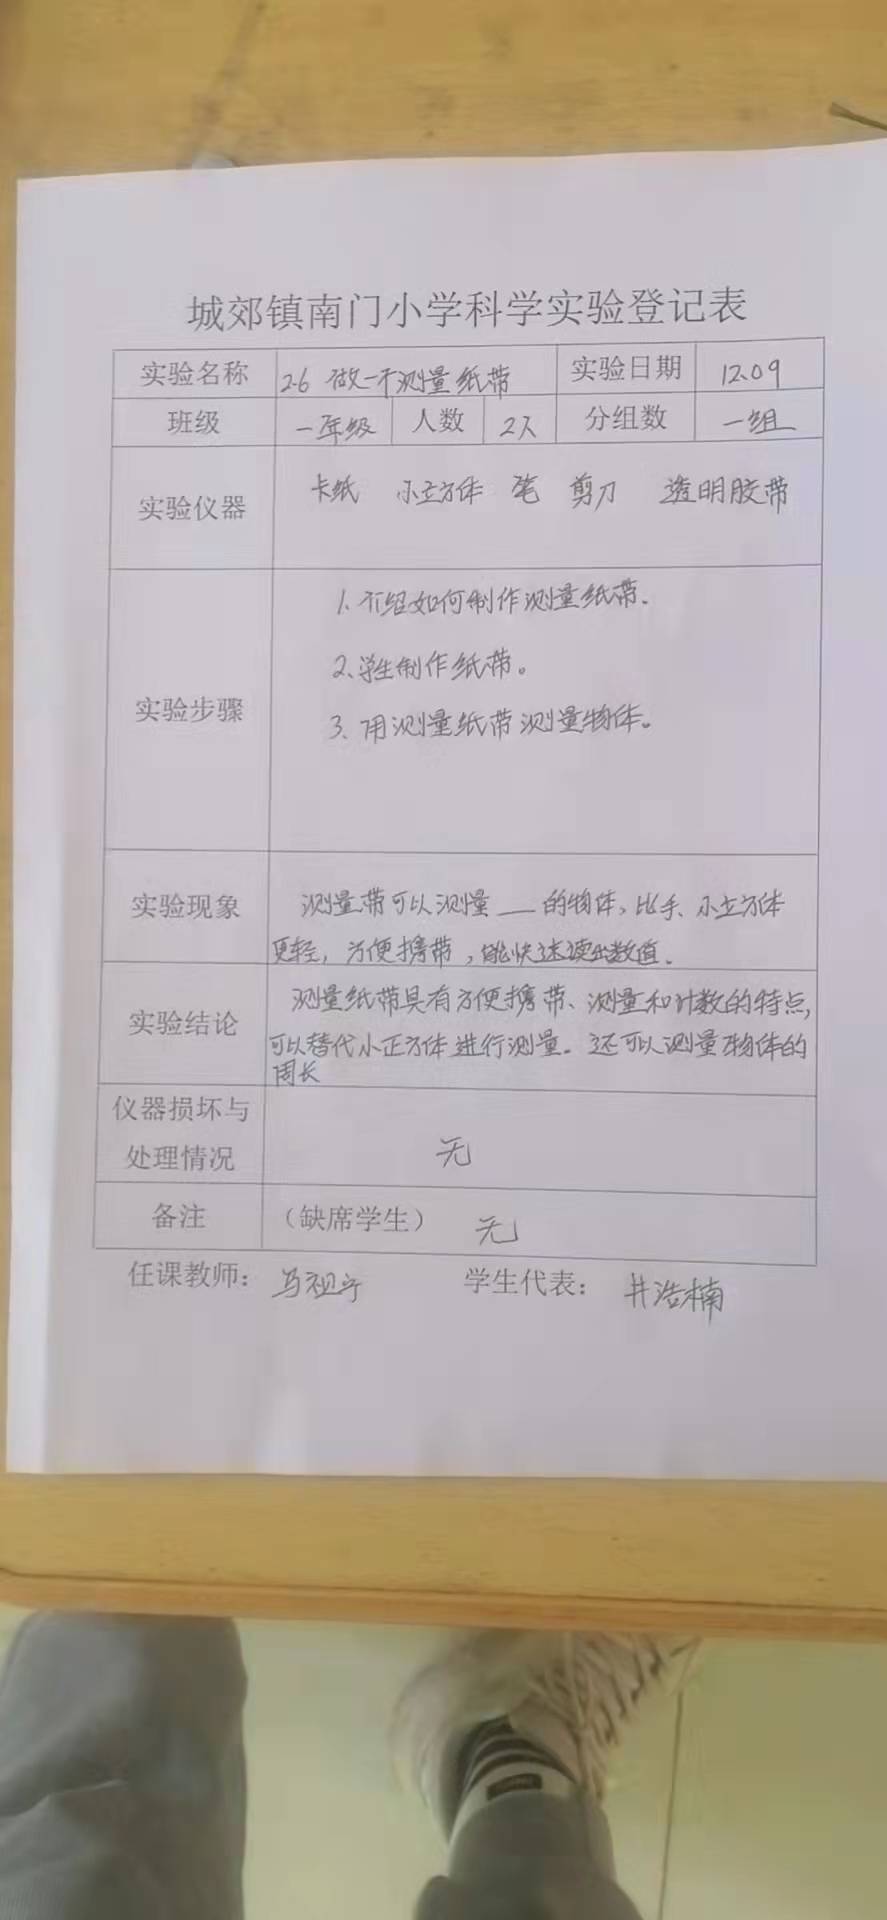 城郊镇南门小学科学实验登记表
实验名称 2.6 做一个测量纸带 实验日期 12.09
班级 一年级 人数 2人 分组数 一组
实验仪器 卡纸 小立方体 笔 剪刀 透明胶带
实验步骤
1、介绍如何制作测量纸带.
2、学生制作纸带。
3、用测量纸带测量物体。
实验现象
测量带可以测量 — 的物体、比手、小立方体
更轻，方便携带，能快速读出数值.
实验结论
测量纸带具有方便携带、测量和计数的特点,
可以替代小正方体进行测量。还可以测量物体的
周长
仪器损坏与
处理情况 无
备注 （缺席学生） 无
任课教师： 马祖宁 学生代表： 井浩楠